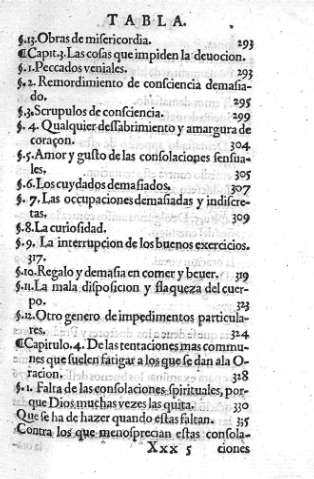 TABLA.
§.13.Obras de misericordia. 293
¶Capit.3.Las cosas que impiden la deuocion.
§.1.Peccados veniales. 293
§.2. Remordimiento de consciencia demasia-
do. 295
§.3.Scrupulos de consciencia. 299
§. 4. Qualquier dessabrimiento y amargura de
coraçon. 304
§.5.Amor y gusto de las consolaciones sensua-
les. 305
§.6.Los cuydados demasiados. 307
§. 7. Las occupaciones demasiadas y indiscre-
tas. 309
§.8.La curiosidad.
§.9. La interrupcion de los buenos exercicios.
317.
§.10.Regalo y demasia en comer y beuer. 319
§.11.La mala disposicion y flaqueza del cuer-
po. 323
§.12.Otro genero de impedimentos particula-
res. 324
¶Capitulo.4. De las tentaciones mas commu-
nes que suelen fatigar a los que se dan ala O-
racion. 328
§.1. Falta de las consolaciones spirituales, por-
que Dios muchas vezes las quita. 330
Que se ha de hazer quando estas faltan. 335
Contra los que menosprecian estas consola-
Xxx 5 ciones